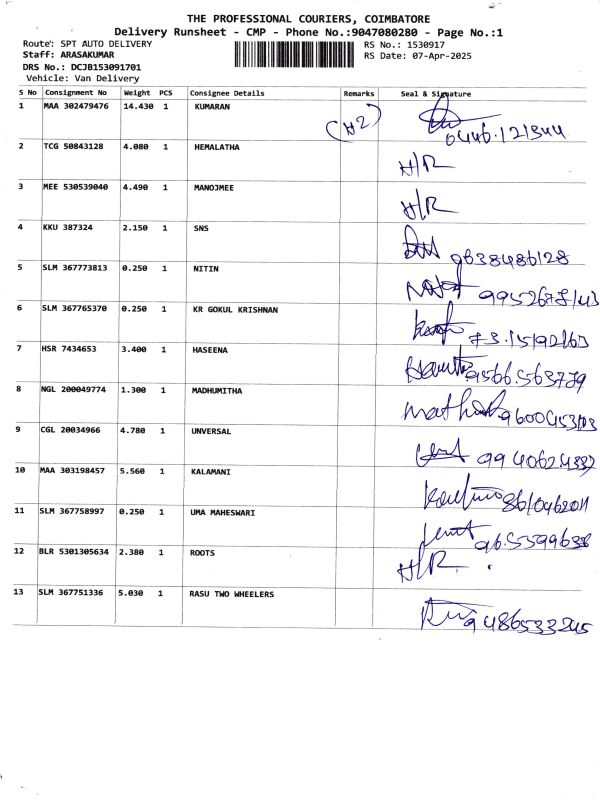 THE PROFESSIONAL COURIERS, COIMBATORE
Delivery Runsheet - CMP - Phone No.:9047080280 - Page No.:1
Route: SPT AUTO DELIVERY
RS No.: 1530917
Staff: ARASAKUMAR
RS Date: 07-Apr-2025
DRS No.: DCJB153091701
Vehicle: Van Delivery
S No Consignment No Weight PCS Consignee Details Remarks Seal & Signature
1 MAA 302479476 14.430 1 KUMARAN (H2)
2 TCG 50843128 4.080 1 HEMALATHA H/R
3 MEE 530539040 4.490 1 MANOJMEE H/R
4 KKU 387324 2.150 1 SNS 9638486128
5 SLM 367773813 0.250 1 NITIN
6 SLM 367765370 0.250 1 KR GOKUL KRISHNAN
7 HSR 7434653 3.400 1 HASEENA
8 NGL 200049774 1.300 1 MADHUMITHA
9 CGL 20034966 4.780 1 UNVERSAL
10 MAA 303198457 5.560 1 KALAMANI
11 SLM 367758997 0.250 1 UMA MAHESWARI
12 BLR 5301305634 2.380 1 ROOTS H/R
13 SLM 367751336 5.030 1 RASU TWO WHEELERS 9486533245